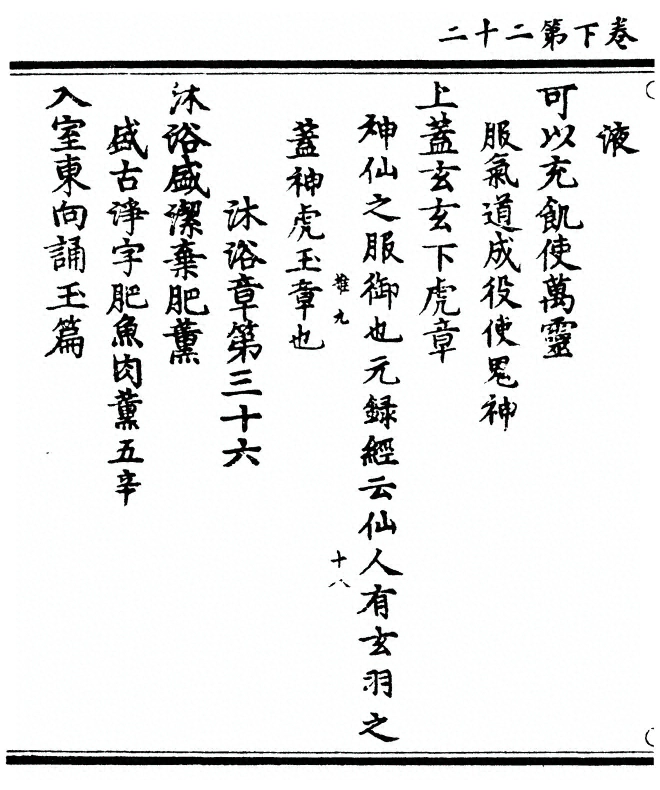 卷下第二十二
液
可以充飢使萬靈
服氣道成役使鬼神
上蓋玄玄下虎章
神仙之服御也元録經云仙人有玄羽之
難九
十八
蓋神虎玉章也
沐浴章第三十六
沐浴盛潔棄肥薰
盛古淨字肥魚肉薰五辛
入室東向誦玉篇